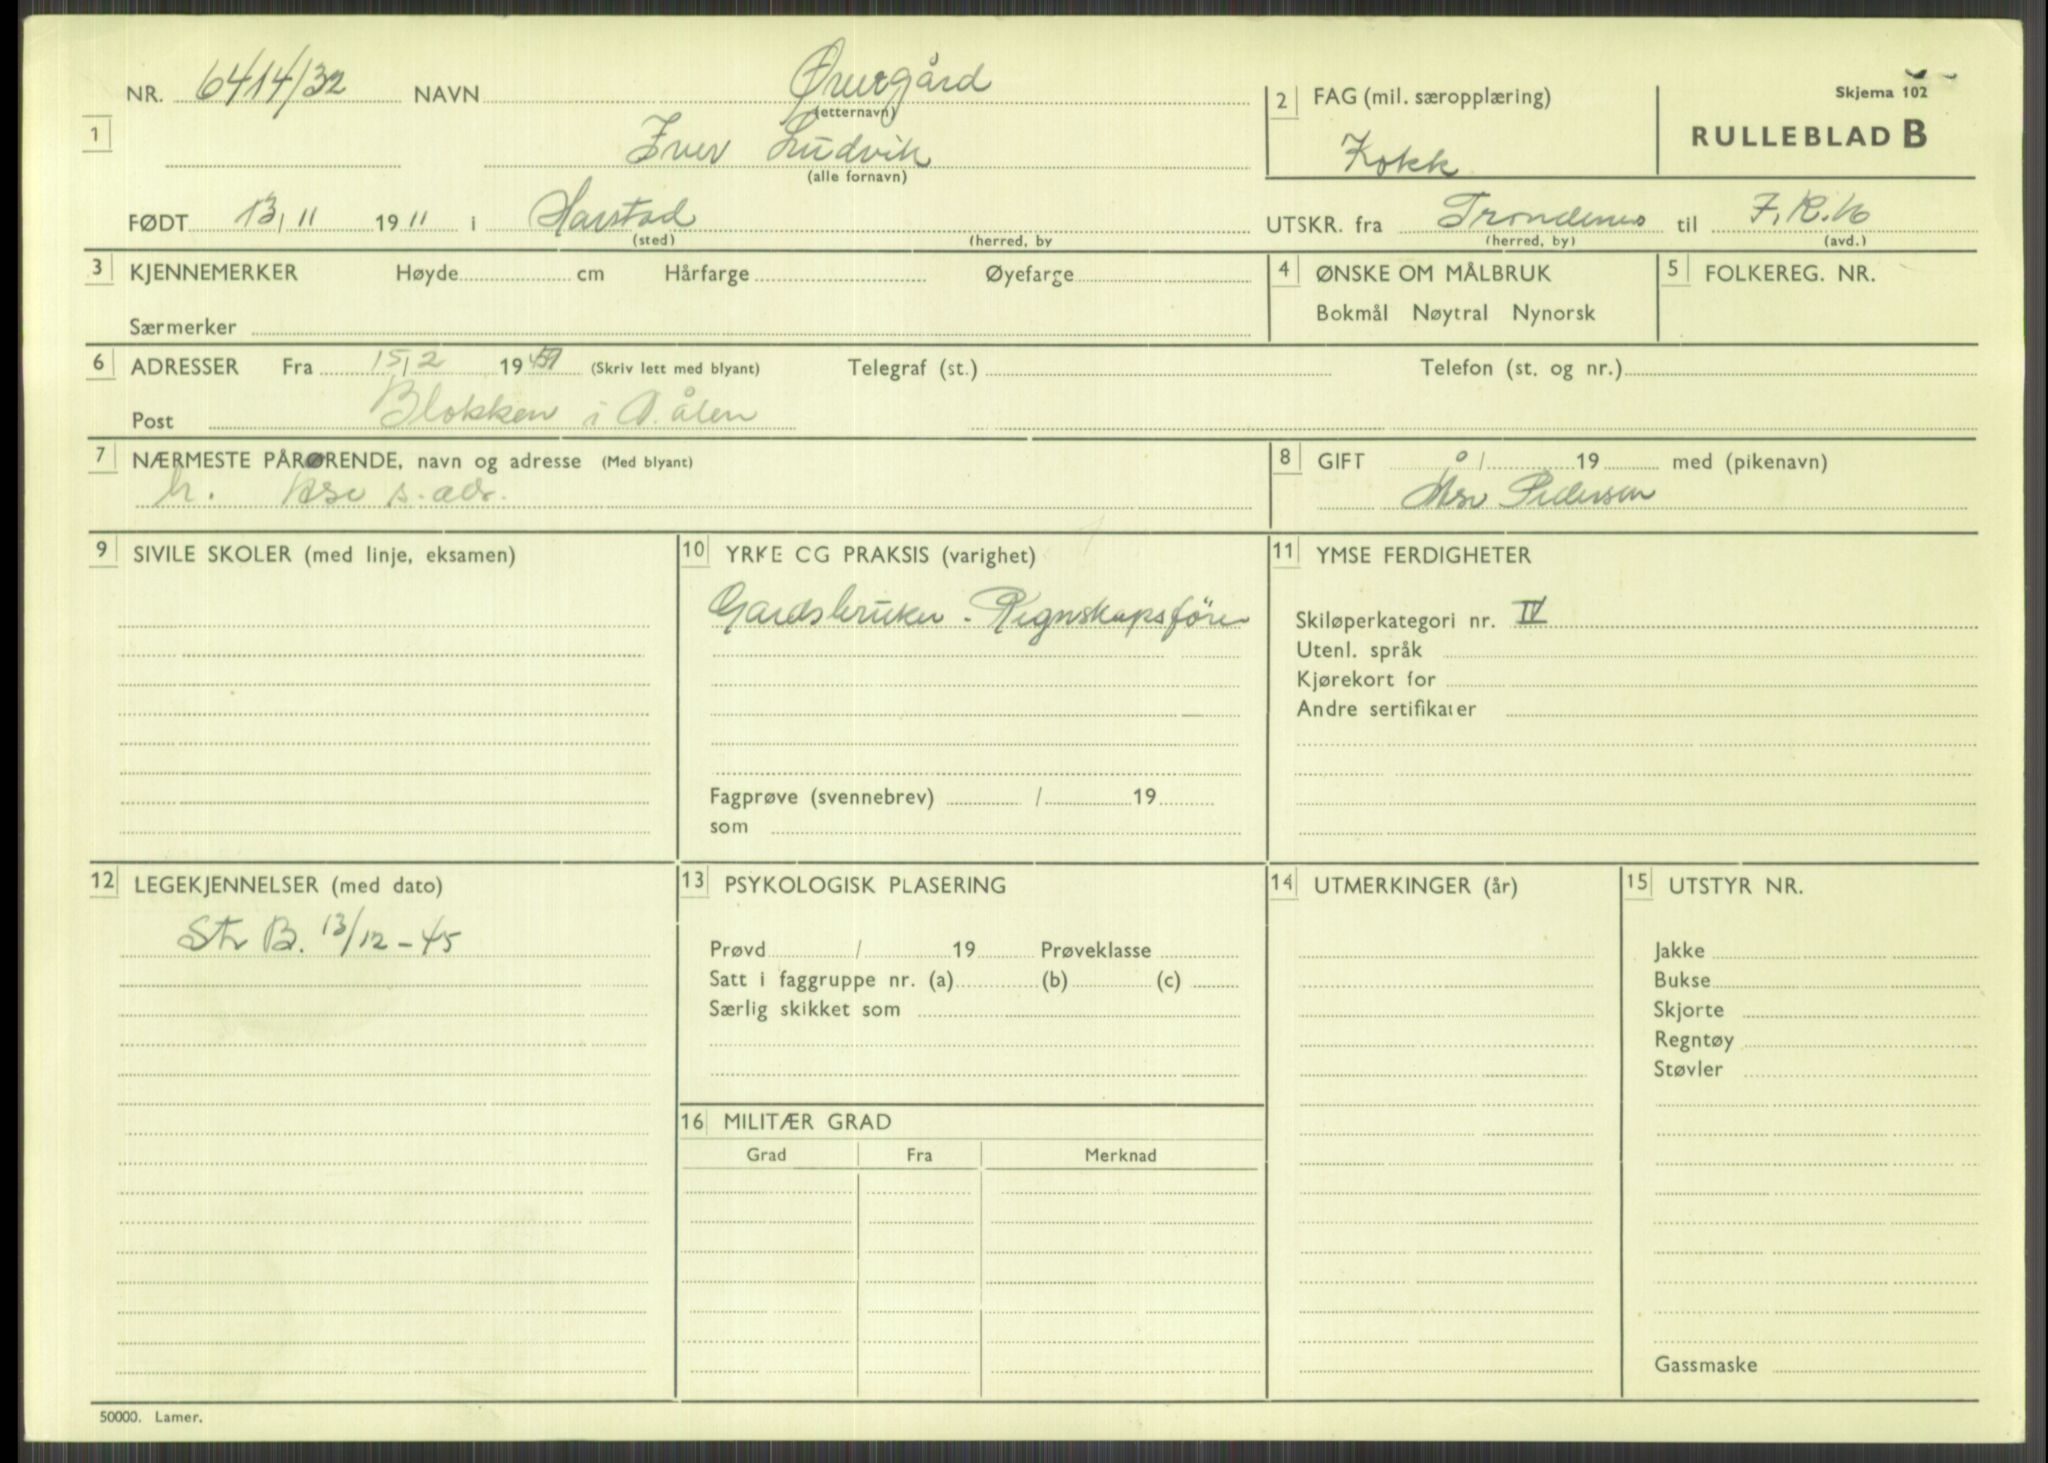 Skjema 102
RULLEBLAD B
1 NR. 6414/32 NAVN Øvergård
(etternavn)
Iver Ludvik
(alle fornavn)
FØDT 13/11 1911 i Harstad
(sted) (herred, by
2 FAG (mil. særopplæring)
Kokk
UTSKR. fra Trondenes til
(herred, by) (avd.)
3 KJENNEMERKER Høyde cm Hårfarge Øyefarge
Særmerker
4 ØNSKE OM MÅLBRUK
Bokmål Nøytral Nynorsk
5 FOLKEREG. NR.
6 ADRESSER Fra 15/2 19 (Skriv lett med blyant) Telegraf (st.) Telefon (st. og nr.)
Post Blokken i Ø.ålen
7 NÆRMESTE PÅRØRENDE, navn og adresse (Med blyant)
h. s. adr.
8 GIFT / 19 med (pikenavn)
Pedersen
9 SIVILE SKOLER (med linje, eksamen)
10 YRKE CG PRAKSIS (varighet)
Gardsbruker - Regnskapsfører
Fagprøve (svennebrev) / 19
som
11 YMSE FERDIGHETER
Skiløperkategori nr. IV
Utenl. språk
Kjørekort for
Andre sertifikater
12 LEGEKJENNELSER (med dato)
Str B. 13/12-45
13 PSYKOLOGISK PLASERING
Prøvd / 19 Prøveklasse
Satt i faggruppe nr. (a) (b) (c)
Særlig skikket som
14 UTMERKINGER (år)
15 UTSTYR NR.
Jakke
Bukse
Skjorte
Regntøy
Støvler
Gassmaske
16 MILITÆR GRAD
Grad Fra Merknad
50000. Lamer.